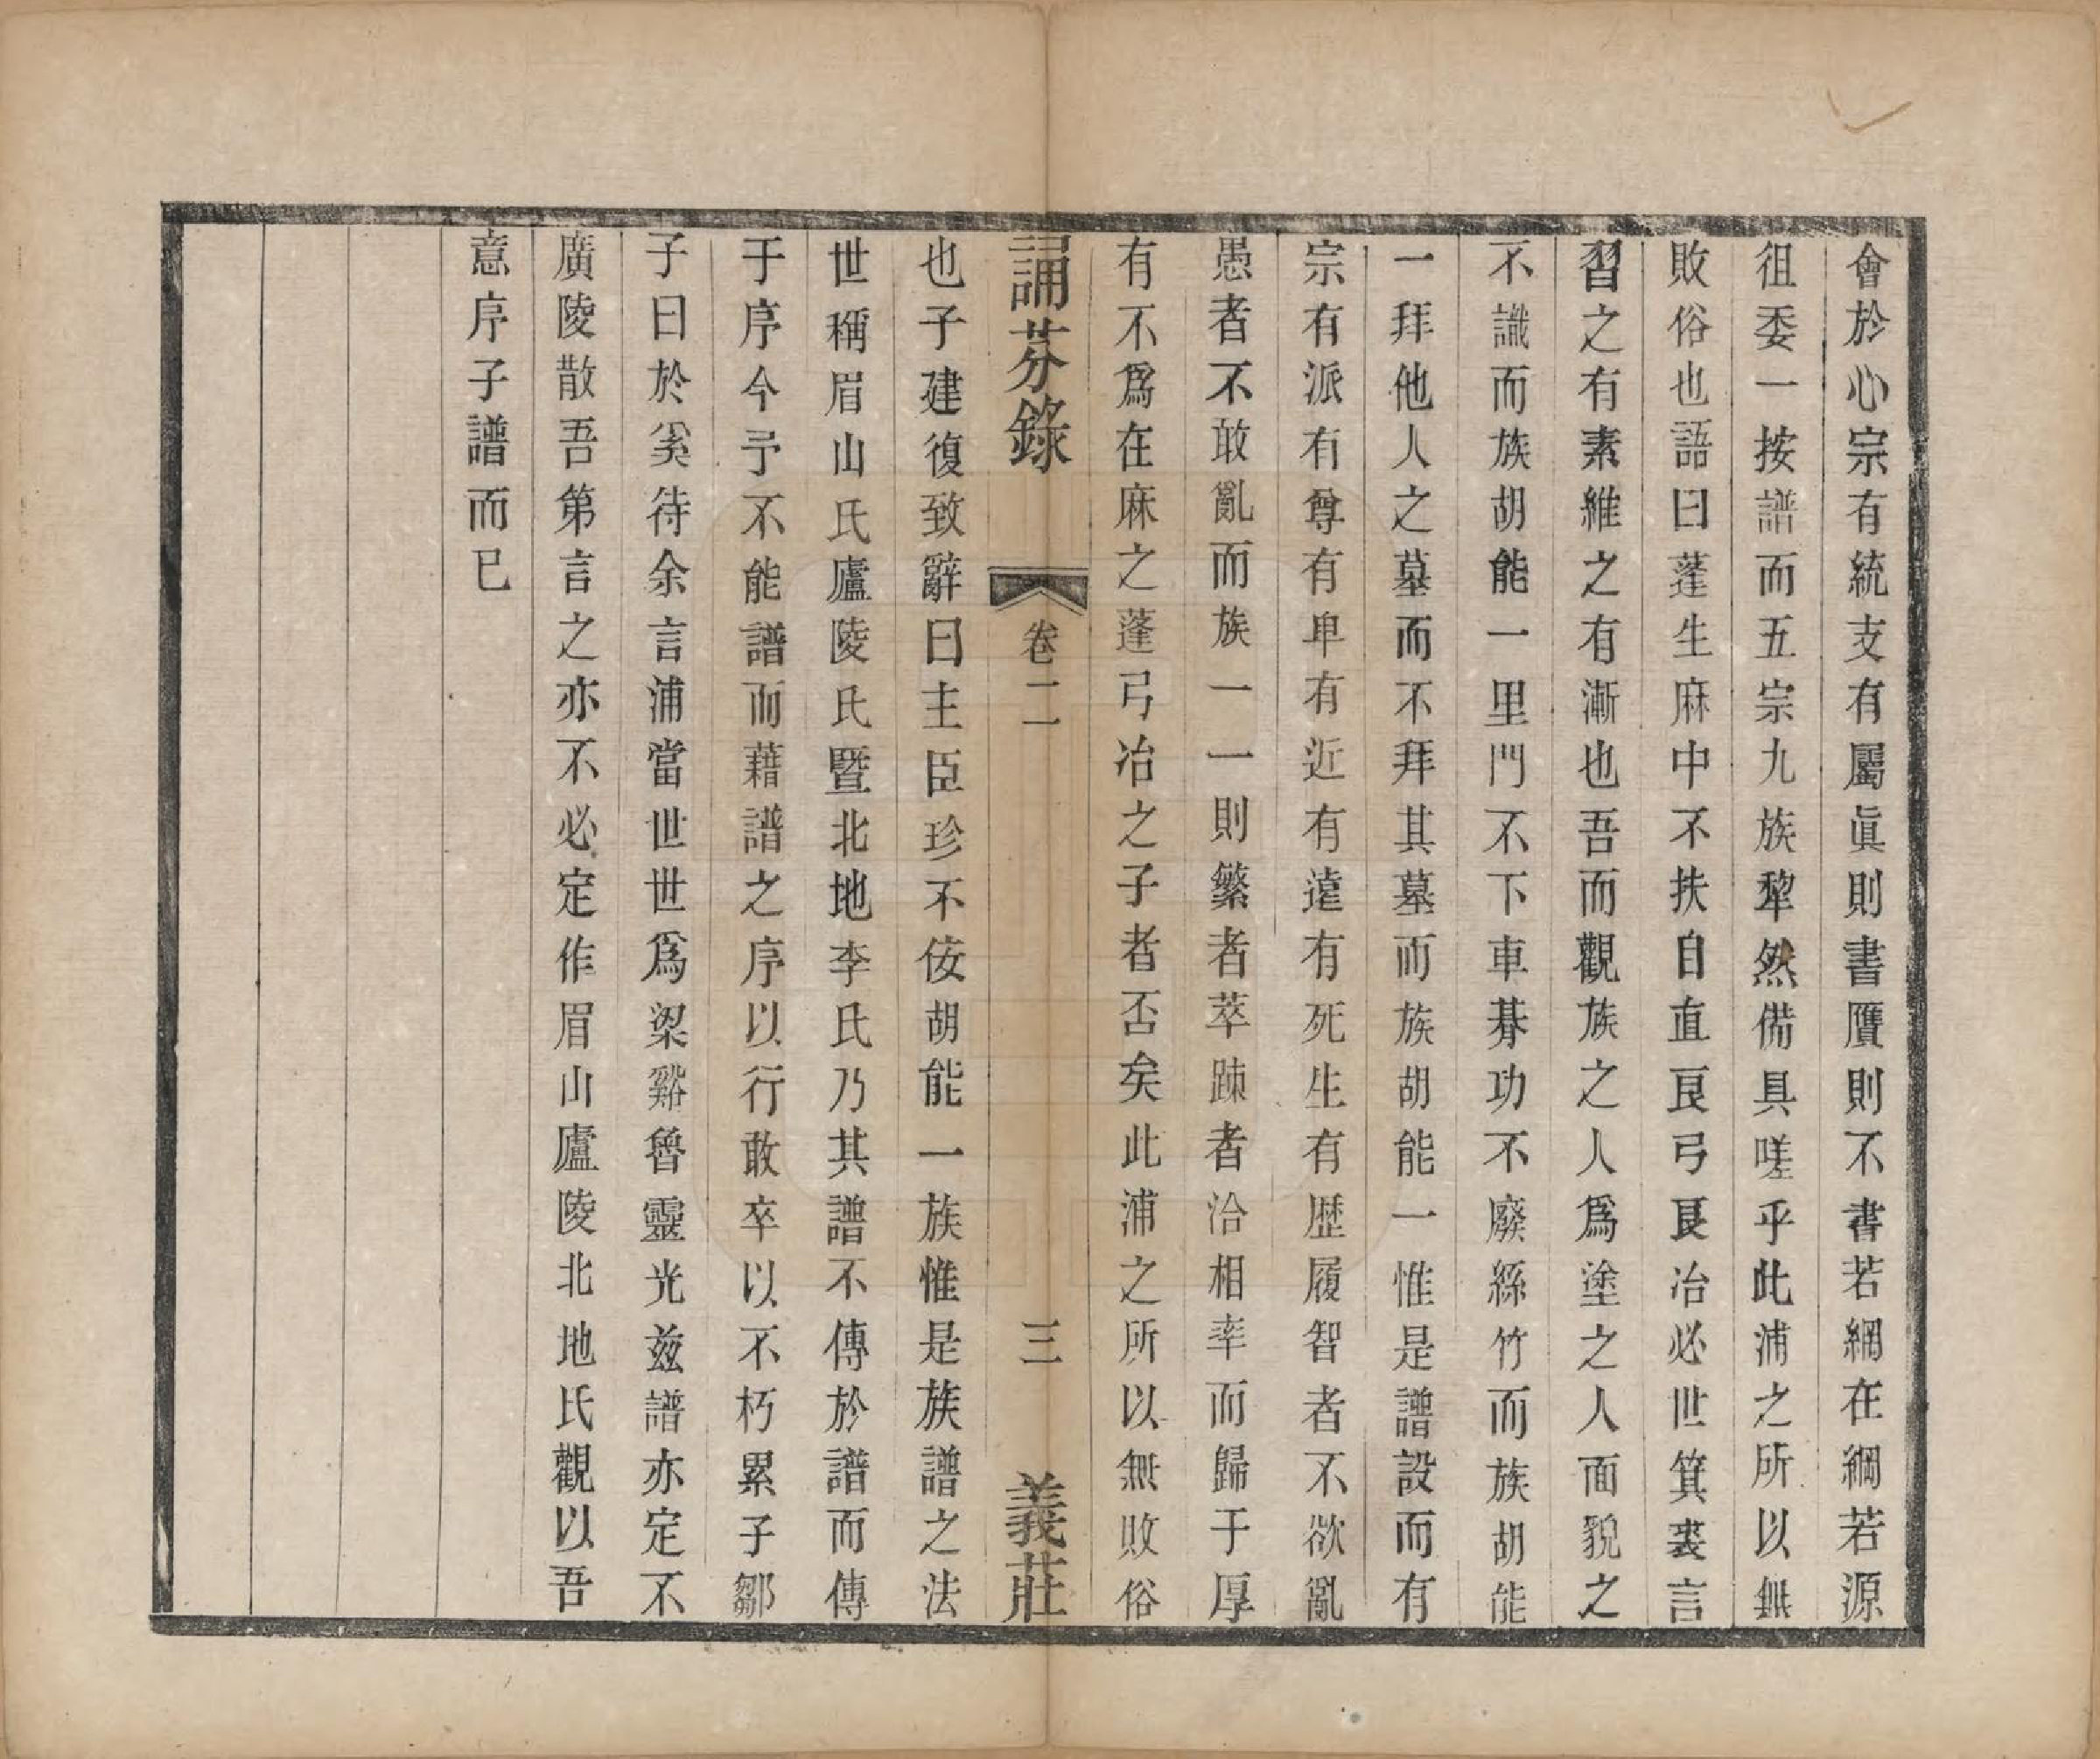 會於心宗有統支有屬眞則書贗則不書若網在綱若源
徂委一按譜而五宗九族犂然備具嗟乎此浦之所以無
敗俗也語曰蓬生麻中不扶自直良弓良冶必世箕裘言
習之有素維之有漸也吾而觀族之人爲塗之人面貌之
不識而族胡能一里門不下車朞功不廢絲竹而族胡能
一拜他人之墓而不拜其墓而族胡能一惟是譜設而有
宗有派有尊有卑有近有遠有死生有歴履智者不欲亂
愚者不敢亂而族一一則繁者萃踈者洽相率而歸于厚
有不爲在麻之蓬弓冶之子者否矣此浦之所以無敗俗
誦芬錄 卷二 三 義莊
也子建復致辭曰主臣珍不佞胡能一族惟是族譜之法
世稱眉山氏廬陵氏暨北地李氏乃其譜不傳於譜而傳
于序今予不能譜而藉譜之序以行敢卒以不朽累子鄒
子曰於奚待余言浦當世世爲梁谿魯靈光兹譜亦定不
廣陵散吾第言之亦不必定作眉山廬陵北地氏觀以吾
意序子譜而已